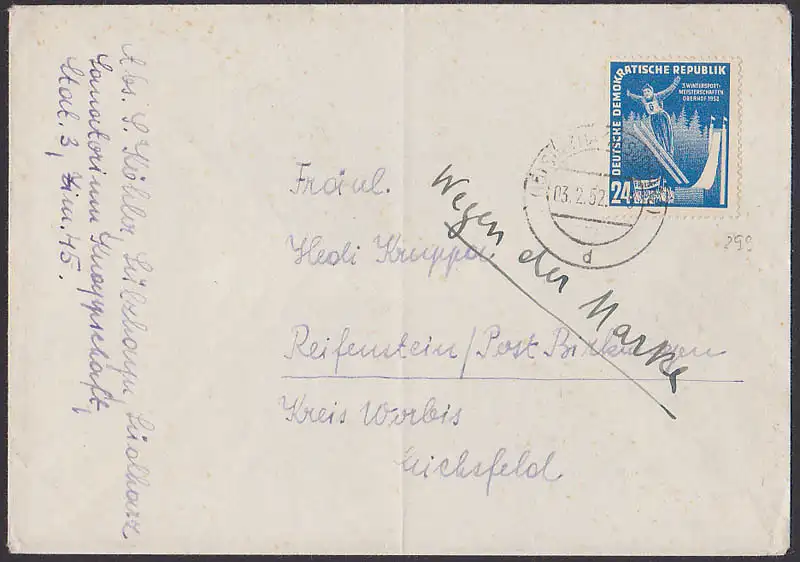 Abs. S. Köhler Sülzhayn, Südharz
Sanatorium Knappschaft,
Stat. 3, Zim. 45.
DEUTSCHE DEMOKRATISCHE REPUBLIK
3. WINTERSPORT-
MEISTERSCHAFTEN
OBERHOF 1952
24
03.2.52.
d
299
Fräul.
Hedi Kruppa.
Wegen der Marke
Reifenstein/Post Birkungen
Kreis Worbis
Eichsfeld